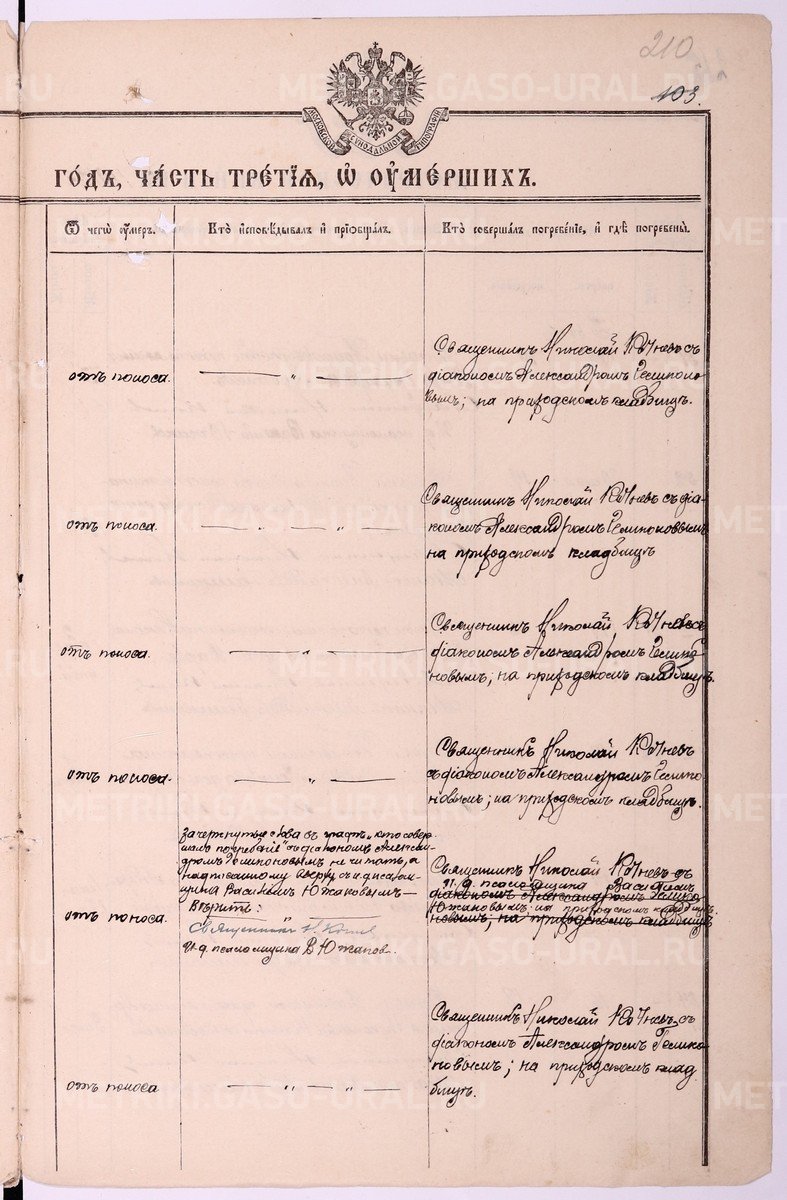 210
103.
МОСКОВСКОЙ СѴНОДАЛЬНОЙ ТИПОГРАФІИ
ГО́ДЪ, ЧА́СТЬ ТРЕ́ТІѦ, Ѡ҆ ОУ҆МЕ́РШИХЪ.
Ѿ чегѡ̀ ᲂу҆́меръ.
Кто̀ и҆сповѣ́дывалъ и҆ прїѡбща́лъ.
Кто̀ соверша́лъ погребе́нїе, и҆ гдѣ̀ погребены̀.
отъ поноса.
— „ —
Священникъ Николай
съ
діакономъ Александромъ
на приходскомъ кладбищѣ.
отъ поноса.
— „ — „ —
Священникъ Николай
съ діа-
кономъ Александромъ
на приходскомъ кладбищѣ
отъ поноса.
— „ —
Священникъ Николай
съ
діакономъ Александромъ
новымъ; на приходскомъ кладбищѣ.
отъ поноса.
— „ —
Священникъ Николай
съ діакономъ Александромъ
новымъ; на приходскомъ кладбищѣ.
отъ поноса.
зачеркнутые слова въ графѣ „кто совер
шалъ погребеніе" съ діакономъ Алексан-
дромъ
не читать, а
надписанному сверху съ и.д. псалом-
щика Василіемъ Южаковымъ—
вѣрить:
Священникъ Н.
И.д. псаломщика В Южаков
Священникъ Николай
съ
и. д. псаломщика Василіемъ
діакономъ Александромъ
Южаковымъ; на приходскомъ кладбищѣ.
новымъ; на приходскомъ кладбищѣ
отъ поноса
— „ — „ —
Священникъ Николай
съ
діакономъ Александромъ
новымъ; на приходскомъ клад
бищѣ.
METRIKI.GASO-URAL.RU